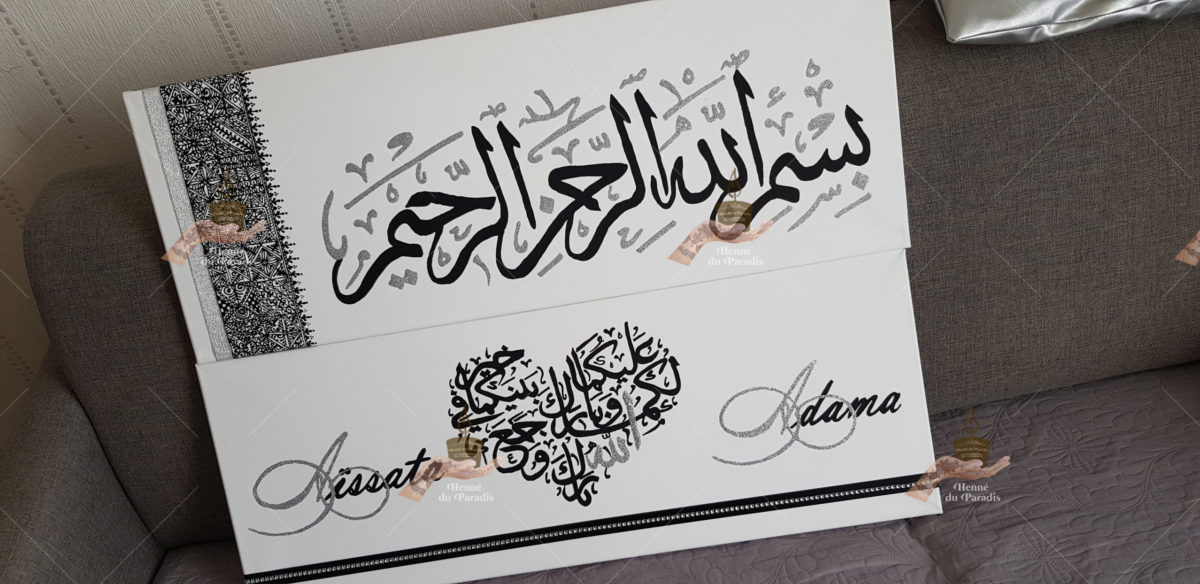 بسم الله الرحمن الرحيم
بارك الله لكما وبارك عليكما وجمع بينكما في خير
Aïssata
Adama
Henné
du Paradis
Henné
du Paradis
Henné
du Paradis